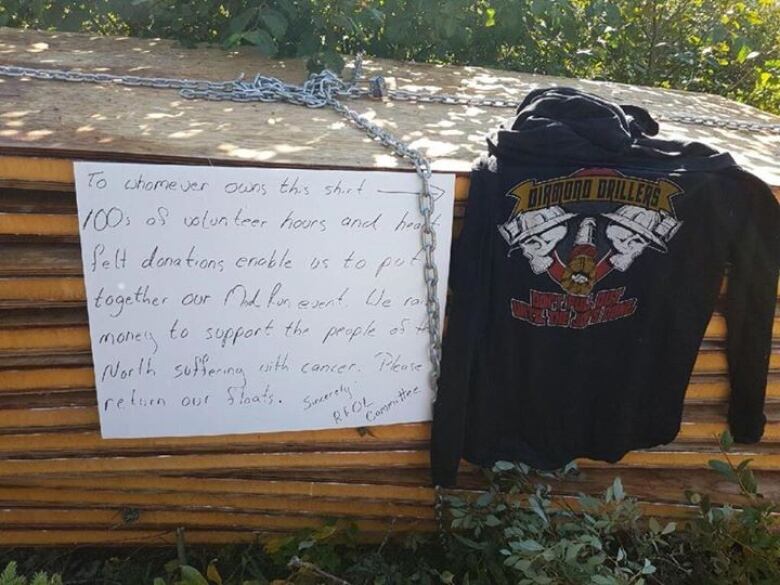 To whomever owns this shirt →
100s of volunteer hours and heart
felt donations enable us to put
together our Mud Run event. We
money to support the people of
North suffering with cancer. Please
return our floats. Sincerely
RFOL Committee
DIAMOND DRILLERS